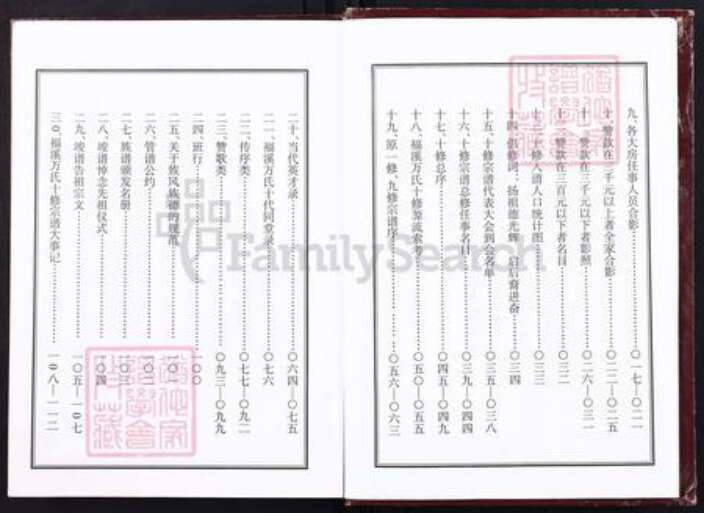 九、各大房任事人员合影……〇一七—〇二一
十、赞款在三千元以上者全家合影……〇二二—〇二五
十一、赞款在三千元以下者影照……〇二六—〇三一
十二、赞款在三百元以下者名目……〇三二
十三、十修入谱人口统计图……〇三三
十四、倡修词：扬祖德光辉 启后裔进奋……〇三四
十五、十修宗谱代表大会到会名单……〇三五—〇三八
十六、十修宗谱总修任事名目……〇三九—〇四四
十七、十修总序……〇四五—〇四九
十八、福溪万氏十修源流索考……〇五〇—〇五五
十九、原一修、九修宗谱序……〇五六—〇六三
二十、当代英才录……〇六四—〇七五
二一、福溪万氏十代同堂录……〇七六
二二、传序类……〇七七—〇九二
二三、赞歌类……〇九三—〇九九
二四、班行……一〇〇
二五、关于族风族德的规范……一〇一
二六、管谱公约……一〇二
二七、族谱颁发名册……一〇三
二八、竣谱悼念先祖仪式……一〇四
二九、竣谱告祖宗文……一〇五—一〇七
三〇、福溪万氏十修宗谱大事记……一〇八—一一二
FamilySearch